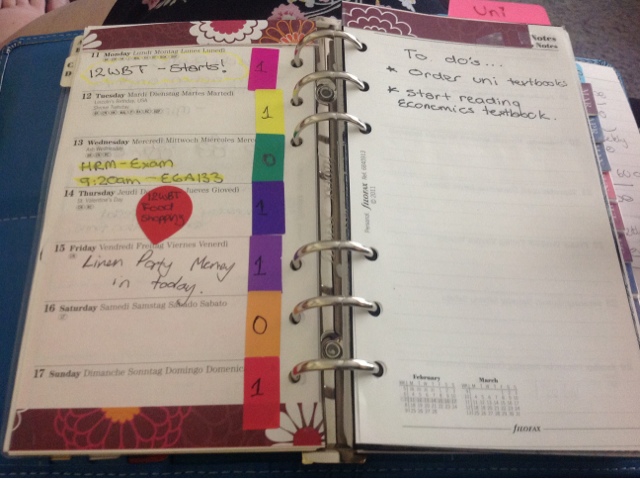 Uni
11 Monday Lundi Montag Lunes Lunedì
12WBT - Starts!
1
12 Tuesday Mardi Dienstag Martes Martedì
1
13 Wednesday Mercredi Mittwoch Miércoles Merc
Ash Wednesday
HRM - Exam
9:20am - EGA133
0
14 Thursday Jeudi Jueves Giovedì
St. Valentine's Day
12WBT
Food
Shopping
1
15 Friday Vendredi Freitag Viernes Venerdì
Linen Party Money
in today.
1
16 Saturday Samedi Samstag Sábado Sabato
0
17 Sunday Dimanche Sonntag Domingo Domenic
1
Notes
Notes
To do's...
* Order uni textbooks
* Start reading
Economics textbook.
Personal filofax
© 2011
February
March
filofax